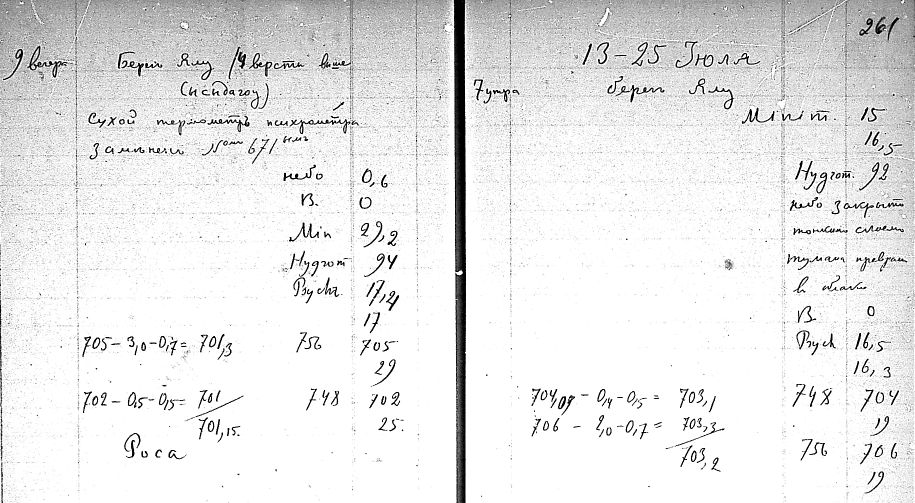 9 вечера Берегъ Ялу /4 версты выше
(            )
Сухой термометръ психрометра
замѣненъ Nомъ 671ымъ
небо 0,6
В. 0
Min 29,2
Hygrom 94
Psychr. 17,4
17
705 – 3,0 – 0,7 = 701,3 756 705
29
702 – 0,5 – 0,5 = 701 748 702
701,15. 25.
Роса
261
13–25 Іюля
7 утра берегъ Ялу
Minim. 15
16,5
Hygrom. 92
небо закрыто
тонкимъ слоемъ
тумана
в облака
В. 0
Psych 16,5
16,3
704,09 – 0,4 – 0,5 = 703,1 748 704
19
706 – 2,0 – 0,7 = 703,3
703,2 756 706
19